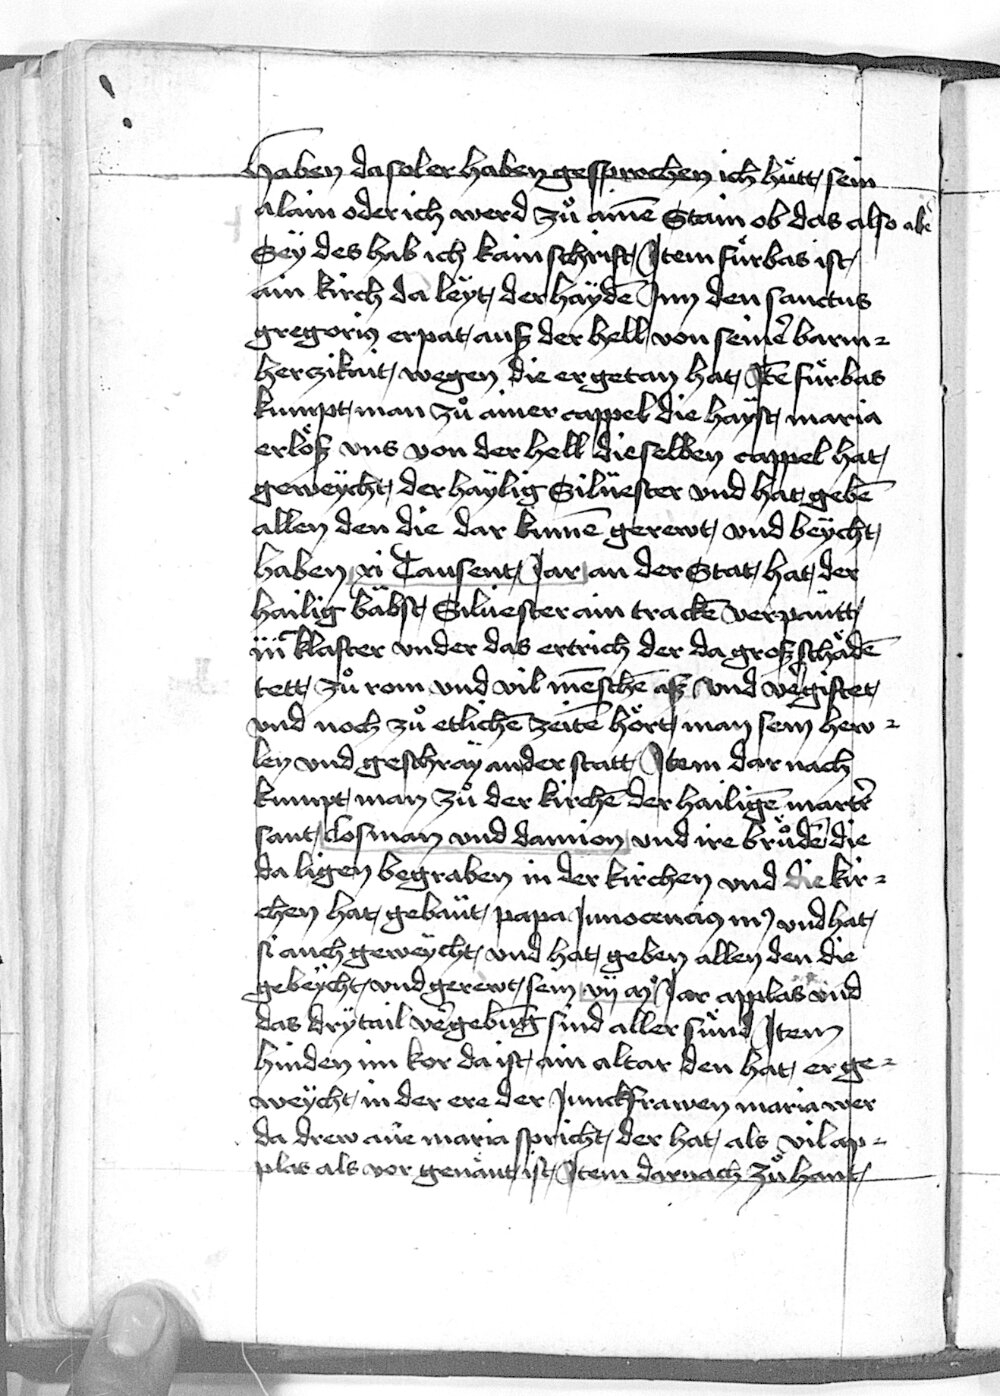 haben da soler haben gesprochen ich hütt sein
alain oder ich werd zů ainē Stain ob das also abē
Seÿ des hab ich kain schrift Item fürbas ist
ain kirch da leÿt der haÿdē Inn den sanctus
gregoriꝰ erpat auß der hell von seinē barm⸗
herzikait wegen die er getan hat Itē fürbas
kumpt man zů ainer cappel die haÿst maria
erlöß vns von der hell dieselben cappel hat
geweÿcht der haÿlig Silüester vnd hat gebē
allen den die dar kumē gerewt vnd beÿcht
haben xi Tausent Jar an der Stat hat der
hailig bäbst Siluester ain trackē verpaütt
iiiᶜ klafter vnder das ertrich der da groß schädē
tett zů rom vnd vil mēschē aß vnd v̄giftet
vnd noch zů etlichē zeitē hört man sein hew⸗
len vnd geschraÿ an der statt Item dar nach
kumpt man zů der kirchē der hailigē martr̄
sant Cosman vnd damion vnd ire brůdē die
da ligen begraben in der kirchen vnd die kir⸗
chen hat gebaüt papa Innocenciꝰ iiiꝰ vnd hat
si auch geweÿcht vnd hat geben allen den die
gebeÿcht vnd gerewt sein vij mͦ Jar applas vnd
das drÿtail v̄gebūg sind aller sünd Item
hinden im kor da ist ain altar den hat er ge⸗
weÿcht in der ere der Junckfrawen maria wer
da drew aue maria spricht der hat als vil ap⸗
plas als vor genänt ist Item darnach zů hant